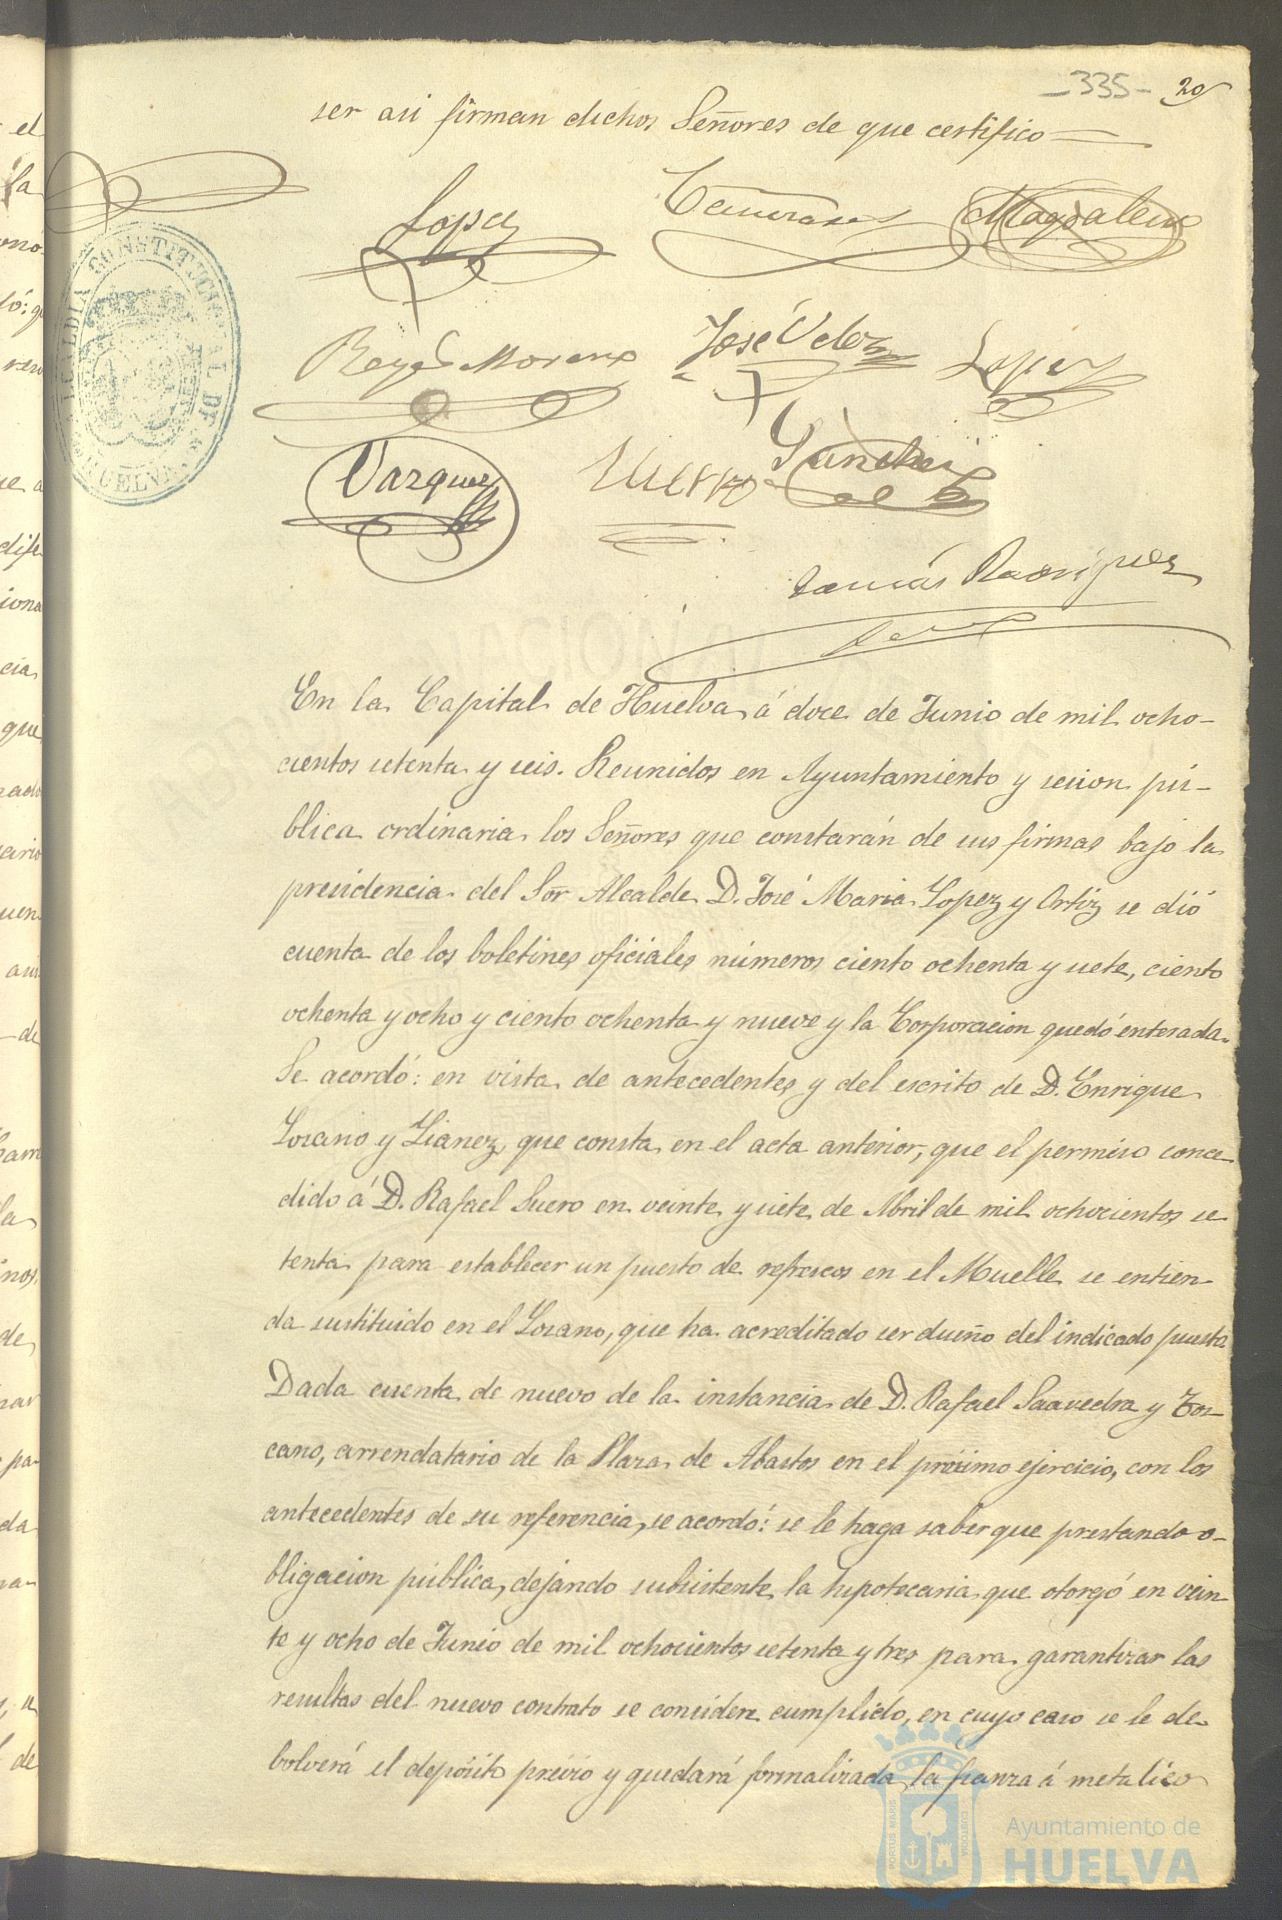 -335- 20
ser asi firman dichos Señores de que certifico
Lopez Magdalena
Reyes Moreno José Velez Lopez
Vazquez Sanchez
Tomás Rodriguez
ALCALDIA CONSTITUCIONAL DE HUELVA
En la Capital de Huelva á doce de Junio de mil ocho-
cientos setenta y seis. Reunidos en Ayuntamiento y sesion pú-
blica ordinaria los Señores que constarán de sus firmas bajo la
presidencia del Sor Alcalde D. José Maria Lopez y Ortiz se dió
cuenta de los boletines oficiales números ciento ochenta y siete, ciento
ochenta y ocho y ciento ochenta y nueve y la Corporacion quedó enterada.
Se acordó: en vista de antecedentes y del escrito de D. Enrique
Losano y Lianez, que consta en el acta anterior, que el permiso conce-
dido á D. Rafael Suero en veinte y siete de Abril de mil ochocientos se
tenta para establecer un puesto de refrescos en el Muelle se entien-
da sustituido en el Losano, que ha acreditado ser dueño del indicado puesto
Dada cuenta de nuevo de la instancia de D. Rafael Saavedra y Tos-
cano, arrendatario de la Plaza de Abastos en el prócsimo ejercicio, con los
antecedentes de su referencia, se acordó: se le haga saber que prestando o-
bligacion pública, dejando subsistente la hipotecaria que otorgó en vein-
te y ocho de Junio de mil ochocientos setenta y tres para garantizar las
resultas del nuevo contrato se considere cumplido, en cuyo caso se le de-
bolverá el depósito prévio y quedará formalizada la fianza á metalico
Ayuntamiento de
HUELVA